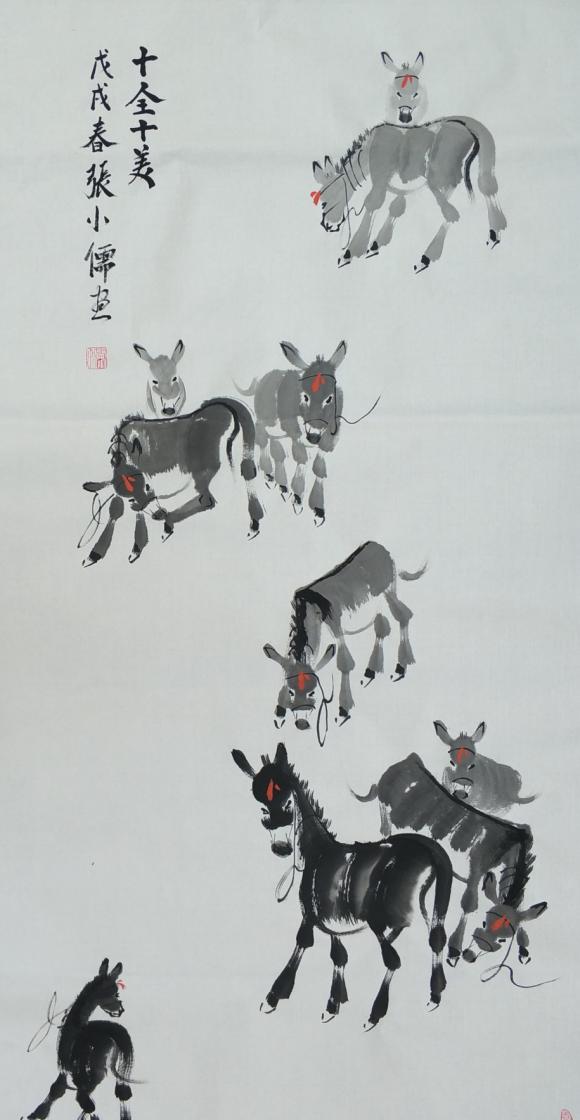 十全十美
戊戌春張小儒画